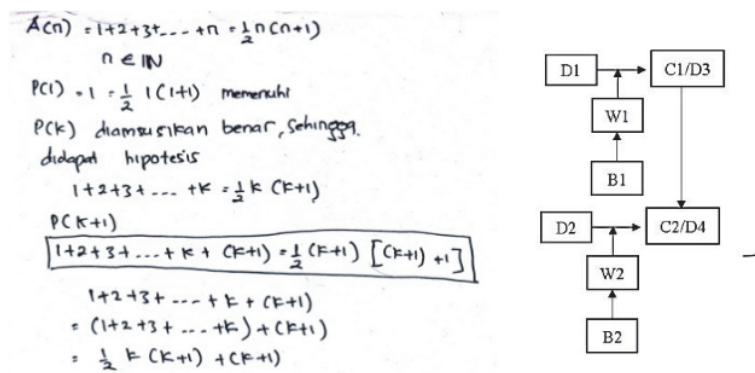 A(n) = 1+2+3+...+n = 1/2 n(n+1)
n ∈ IN
P(1) = 1 = 1/2 1(1+1) memenuhi
P(k) diamsusikan benar, sehingga.
didapat hipotesis
1+2+3+...+k = 1/2 k (k+1)
P(k+1)
1+2+3+...+k+ (k+1) = 1/2 (k+1) [(k+1)+1]
1+2+3+...+k+(k+1)
= (1+2+3+...+k)+(k+1)
= 1/2 k (k+1) +(k+1)
D1
C1/D3
W1
B1
D2
C2/D4
W2
B2